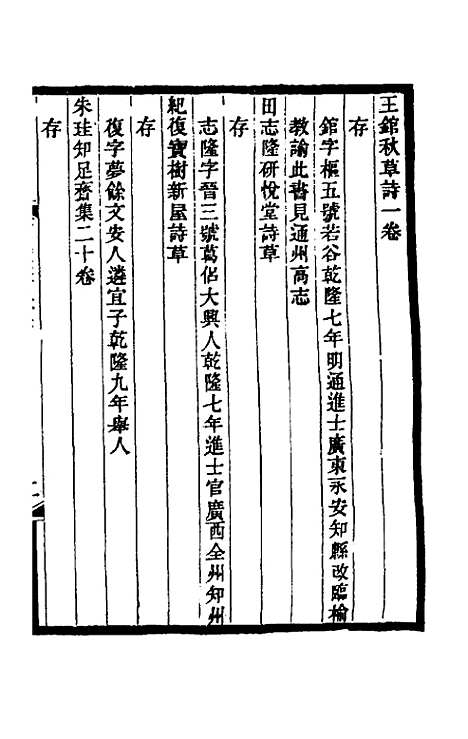 王錧秋草詩一卷
存
錧字樞五號若谷乾隆七年明通進士廣東永安知縣改臨榆
教諭此書見通州高志
田志隆研悅堂詩草
存
志隆字晉三號葛侶大興人乾隆七年進士官廣西全州知州
紀復寶樹新屋詩草
存
復字夢餘文安人遴宜子乾隆九年舉人
朱珪知足齋集二十卷
存